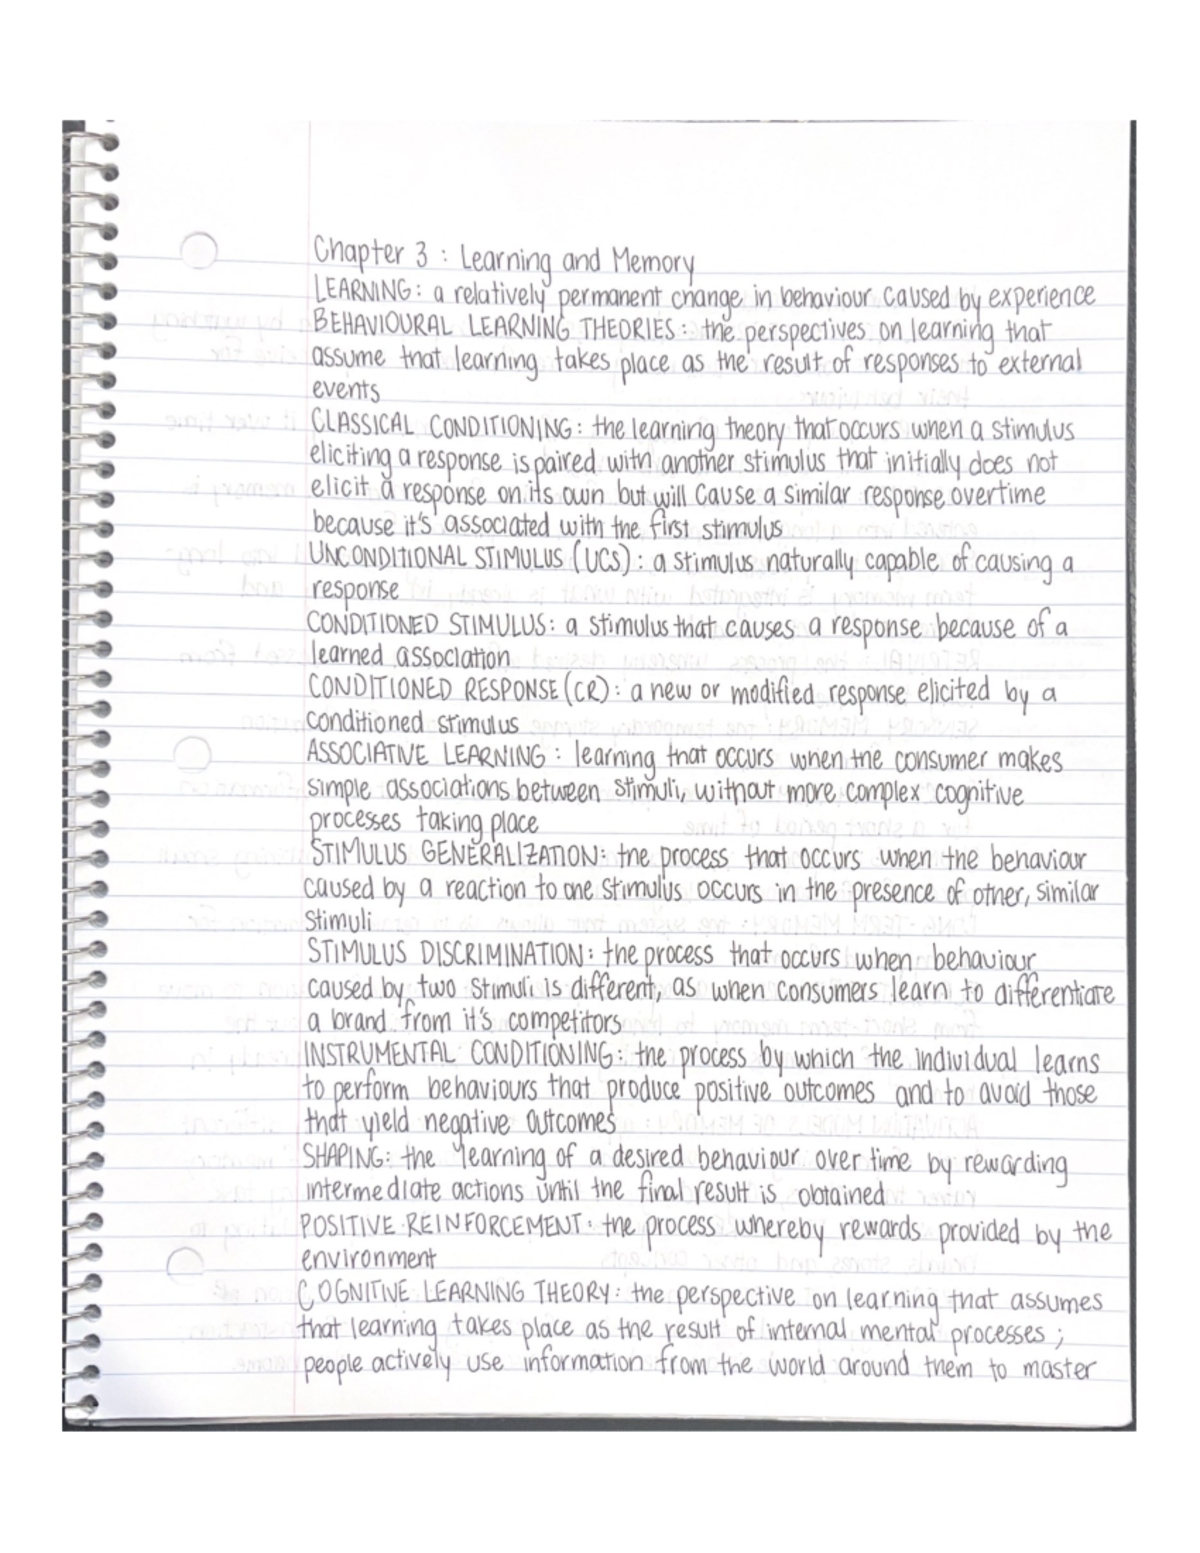 Chapter 3 : Learning and Memory
LEARNING: a relatively permanent change in behaviour caused by experience
BEHAVIOURAL LEARNING THEORIES: the perspectives on learning that
assume that learning takes place as the result of responses to external
events
CLASSICAL CONDITIONING: the learning theory that occurs when a stimulus
eliciting a response is paired with another stimulus that initially does not
elicit a response on its own but will cause a similar response overtime
because it's associated with the first stimulus
UNCONDITIONAL STIMULUS (UCS): a stimulus naturally capable of causing a
response
CONDITIONED STIMULUS: a stimulus that causes a response because of a
learned association
CONDITIONED RESPONSE (CR): a new or modified response elicited by a
conditioned stimulus
ASSOCIATIVE LEARNING: learning that occurs when the consumer makes
simple associations between stimuli, without more complex cognitive
processes taking place
STIMULUS GENERALIZATION: the process that occurs when the behaviour
caused by a reaction to one stimulus occurs in the presence of other, similar
stimuli
STIMULUS DISCRIMINATION: the process that occurs when behaviour
caused by two stimuli is different, as when consumers learn to differentiate
a brand from it's competitors
INSTRUMENTAL CONDITIONING: the process by which the individual learns
to perform behaviours that produce positive outcomes and to avoid those
that yield negative outcomes
SHAPING: the learning of a desired behaviour over time by rewarding
intermediate actions until the final result is obtained
POSITIVE REINFORCEMENT: the process whereby rewards provided by the
environment
COGNITIVE LEARNING THEORY: the perspective on learning that assumes
that learning takes place as the result of internal mental processes;
people actively use information from the world around them to master